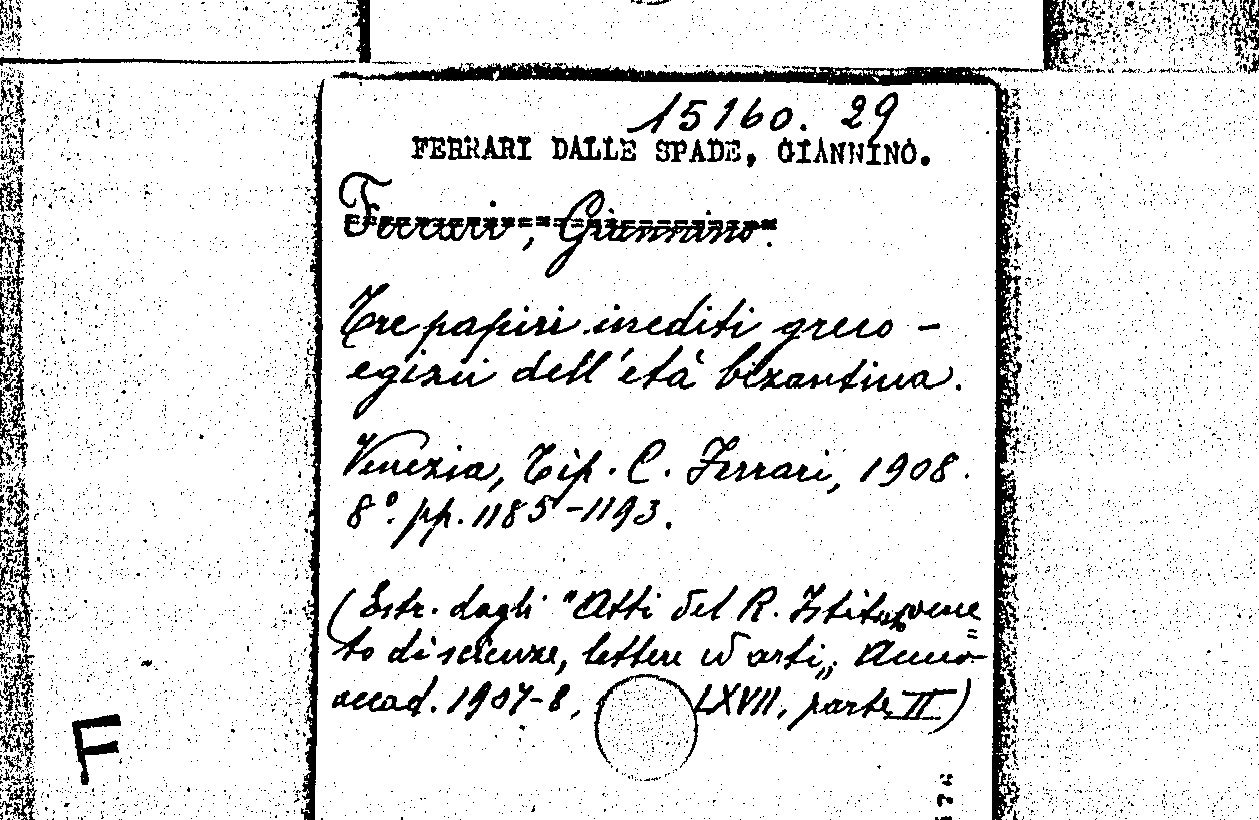 15160. 29
FERRARI DALLE SPADE, GIANNINO.
Ferrari, Giannino.
Tre papiri inediti greco-
egizii dell'età bizantina.
Venezia, Tip. C. Ferrari, 1908.
8º. pp. 1185-1193.
(Estr. dagli "Atti del R. Istituto vene=
to di scienze, lettere ed arti„, Anno
accad. 1907-8, LXVII, parte II)
F